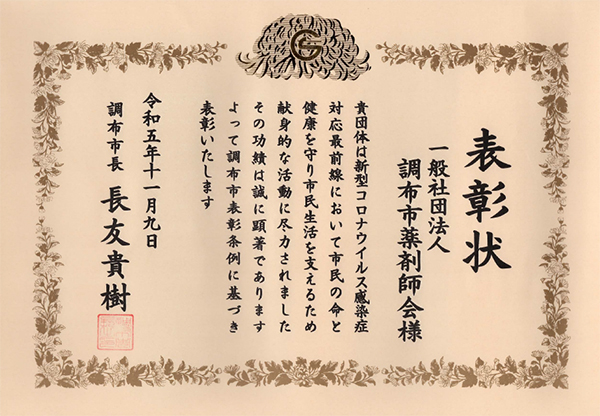 表彰状
一般社団法人
調布市薬剤師会様
貴団体は新型コロナウイルス感染症
対応最前線において市民の命と
健康を守り市民生活を支えるため
献身的な活動に尽力されました
その功績は誠に顕著であります
よって調布市表彰条例に基づき
表彰いたします
令和五年十一月九日
調布市長 長友貴樹